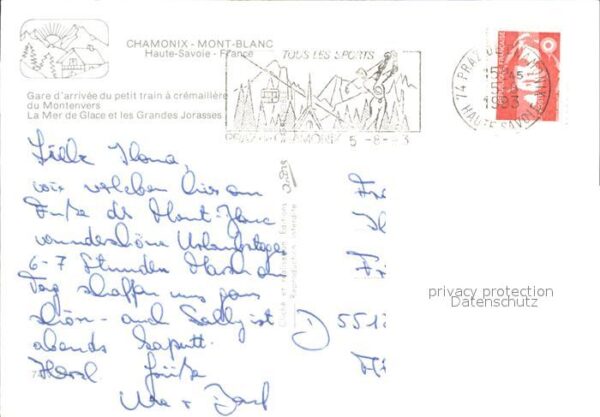 CHAMONIX - MONT-BLANC
Haute-Savoie - France
Gare d'arrivée du petit train à crémaillère
du Montenvers
La Mer de Glace et les Grandes Jorasses
TOUS LES SPORTS
5 -8-
1993
HAUTE SAVOIE
Liebe
wir verleben hier am
Fuße des Mont-Blanc
wunderschöne Urlaubstage
6-7 Stunden Marsch am
Tag schaffen uns ganz
schön - auch Sally ist
abends kaputt.
Herzl. Grüße
Uwe +
D 5512
privacy protection
Datenschutz